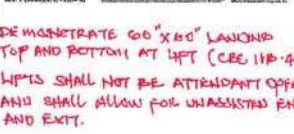 DEMONSTRATE 60"X60" LANDING
TOP AND BOTTOM AT LIFT (CBC 11B-4
LIFTS SHALL NOT BE ATTENDANT OPE
AND SHALL ALLOW FOR UNASSISTED EN
AND EXIT.